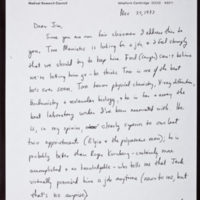 Medical Research Council
Nov 27, 1977
Dear Jim,
Since you are our lab chairman I address this to
you. Tom Maniatis is looking for a job & I feel strongly
that we should try to keep him. Fred (Sanger) can't believe
we're letting him go - he thinks Tom is one of the best
he's ever seen. Tom knows physical chemistry, X-ray diffraction,
biochemistry & molecular biology, & he is in every
laboratory I've been associated with he
is, in my opinion, clearly superior to our last
two appointments (Elgin & the polymerase man); he is
probably better than Roger Kornberg - certainly more
accomplished & as knowledgeable - who tells me that Jack
virtually promised him a job anytime (news to me, but
that's no surprise)